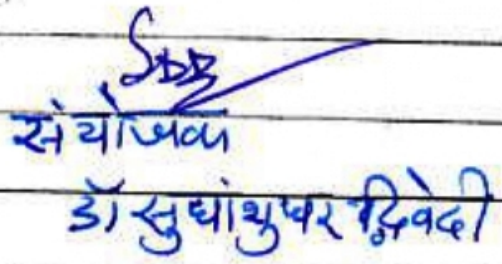 संयोजक
डॉ सुधांशुधर द्विवेदी